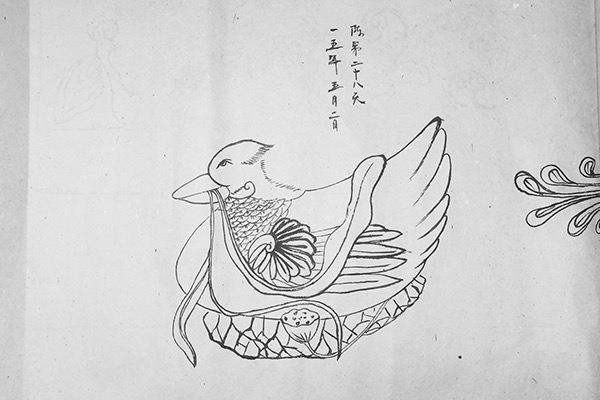 陈第二十八天
一五年五月二日